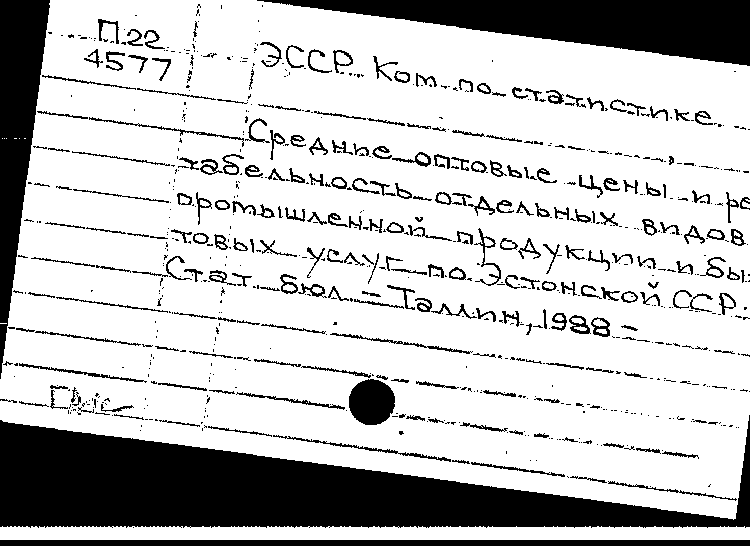 П22
4577
ЭССР Ком. по статистике.
Средние оптовые цены и ре
табельность отдельных видов
промышленной продукции и бы
товых услуг по Эстонской ССР.
Стат. бюл. - Таллин, 1988 -